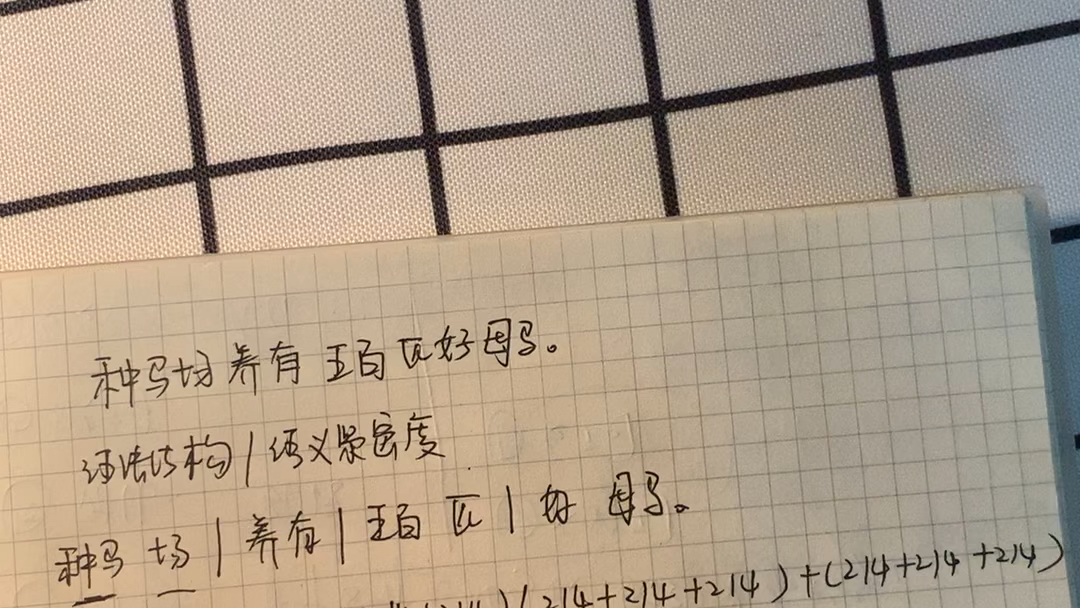 种马场养有五百匹好母马。
语法结构/语义紧密度
种马 场 | 养有 | 五百 匹 | 好 母马。
(214+214+214)+(214+214+214)